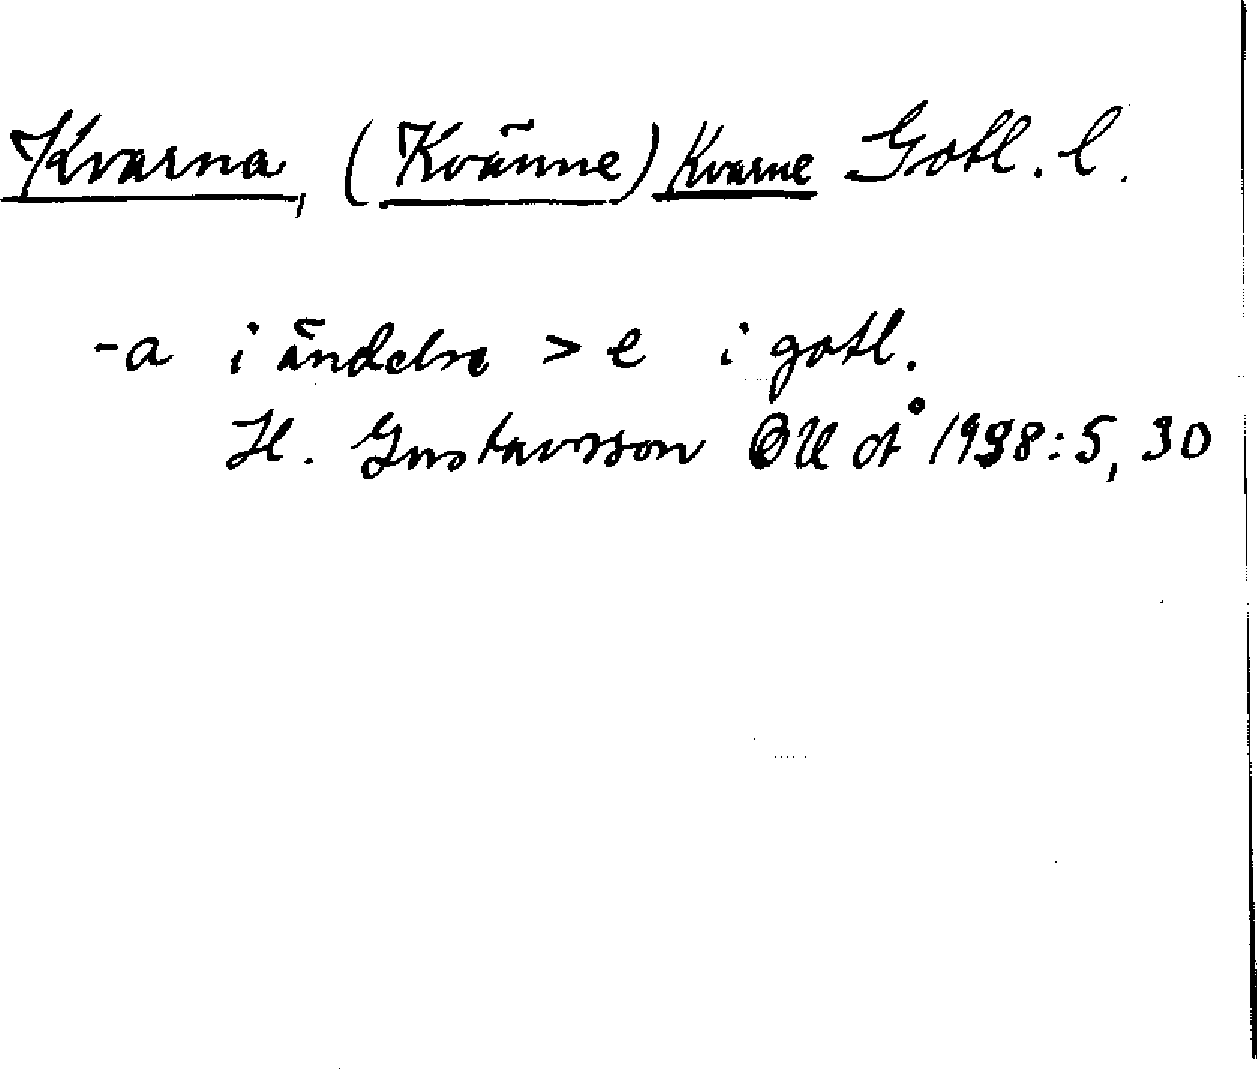 Kvarna, (Kvänne) Kvarne Gotl. l.
-a i ändelse > e i gotl.
H. Gustavsson GUÅ 1938:5, 30